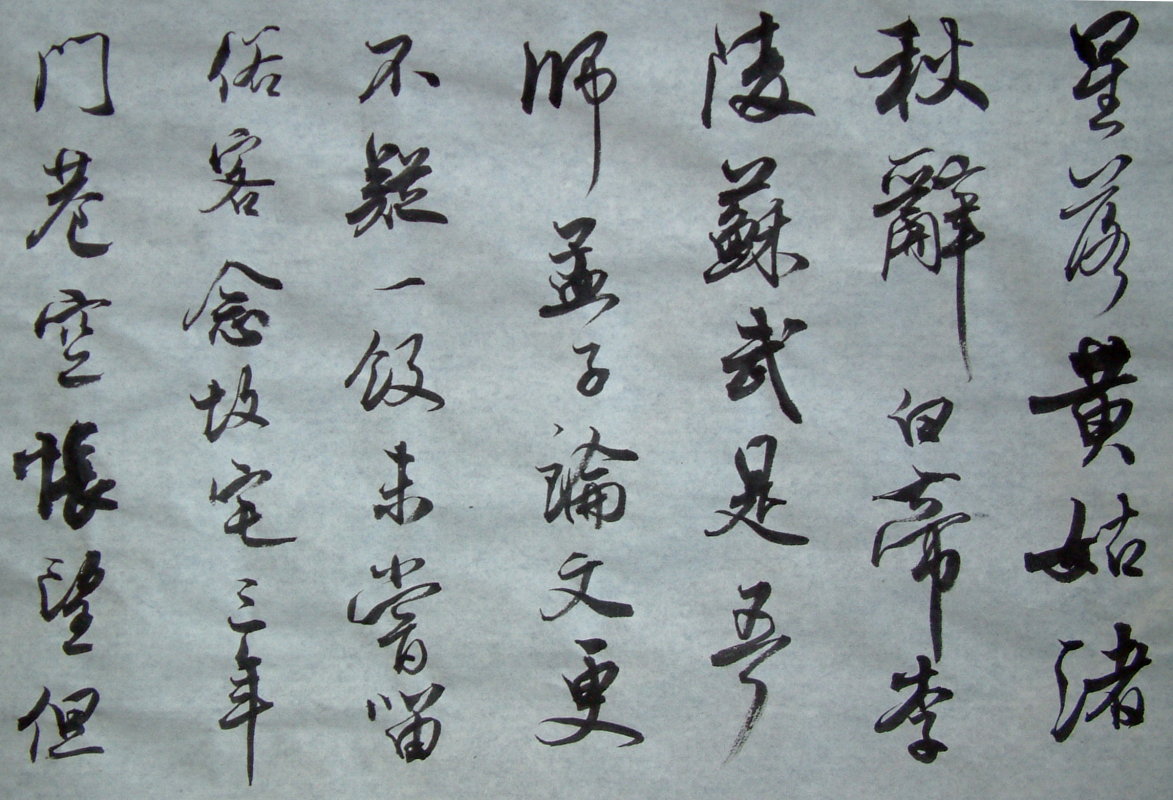 星落黃姑渚
秋辭白帝李
陵蘇武是吾
師孟子論文更
不疑一飯未嘗留
俗客念故宅三年
門巷空悵望但